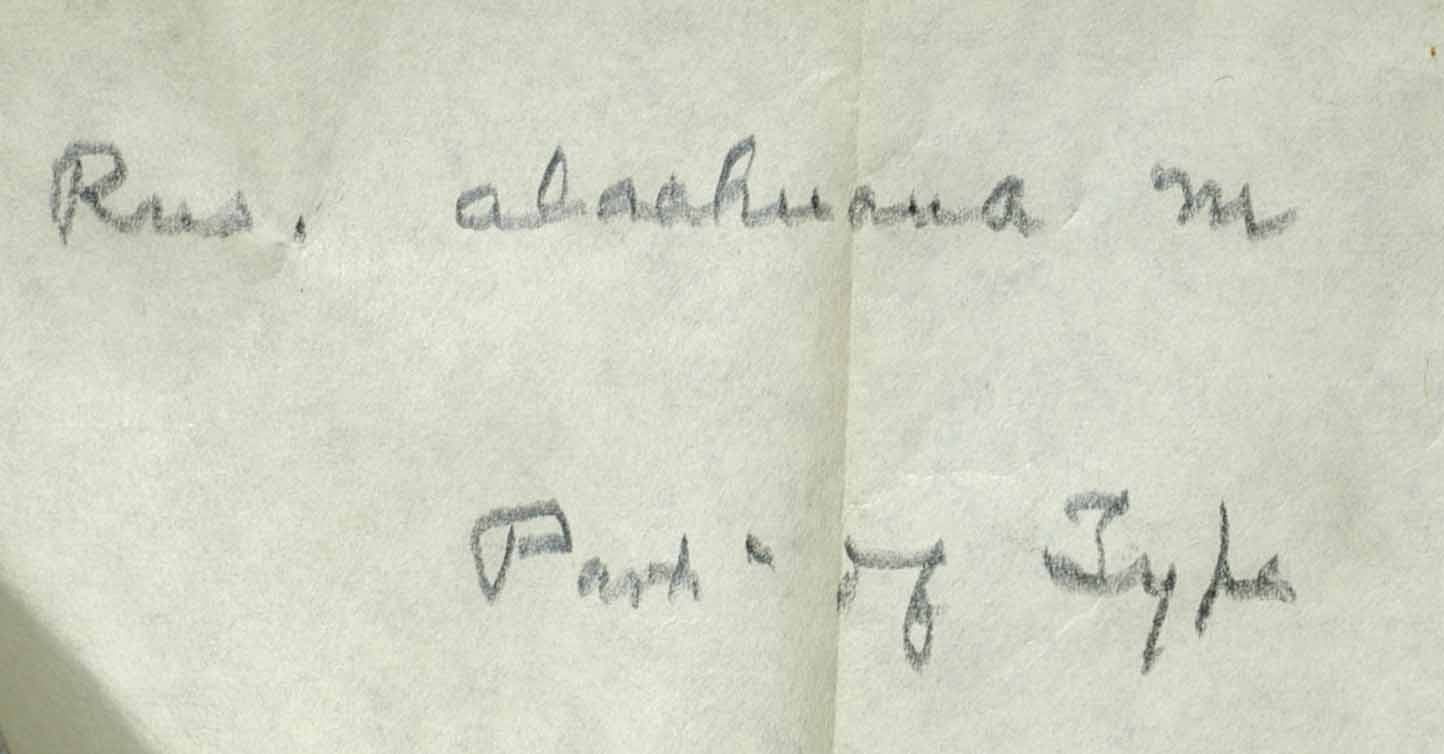 Rus. alachuana M
Part of Type